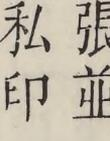 張並
私印